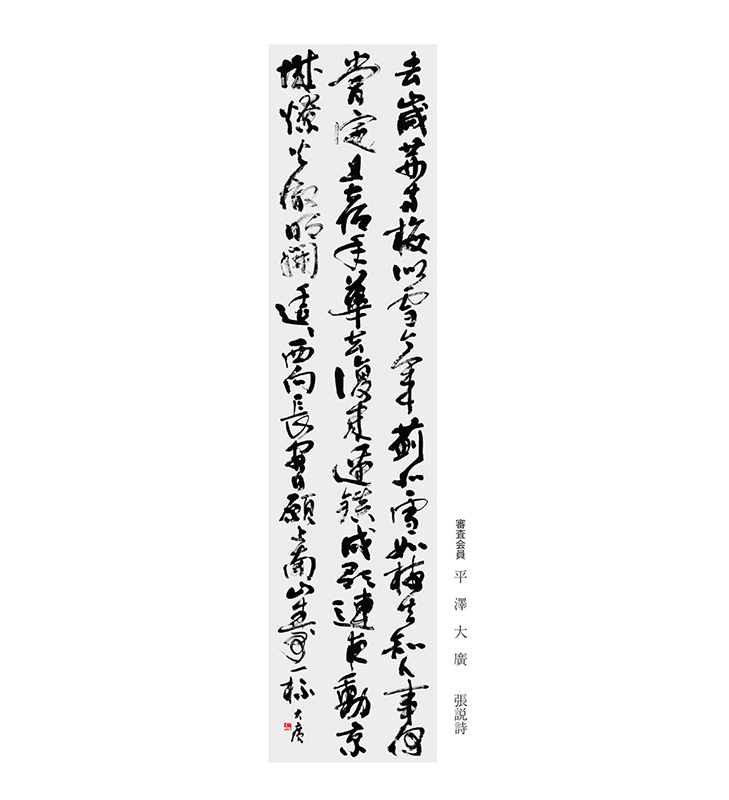 去歲荊南梅似雪今年薊北雪如梅共知人事何
嘗定且喜年華去復来邊鎮戍歌連夜動京
城燎火徹明開遙〻西向長安日願上南山壽一杯 大廣
審査会員 平澤大廣 張説詩